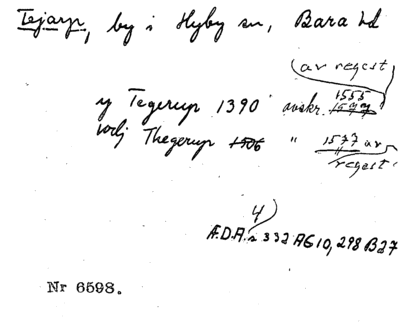 Tejarp, by i Hyby sn, Bara hd
av regest
y Tegerup 1390 avskr. 1555
Thegerup 1506 " 1577 av
regest
4
Æ.D.A. 332 AG 10, 298 B27
Nr 6598.